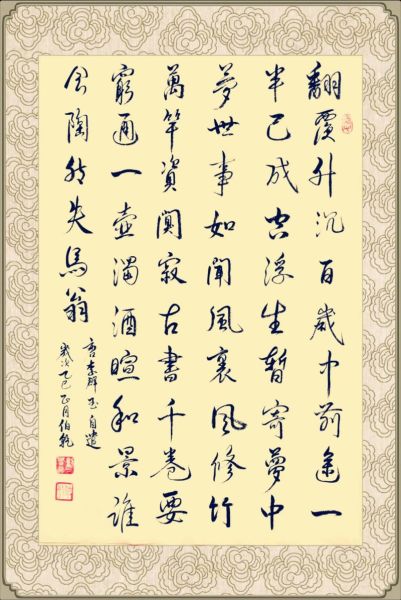 翻覆升沉百歲中前途一
半已成空浮生暫寄夢中
夢世事如聞風裏風修竹
萬竿資闃寂古書千卷要
窮通一壺濁酒暄和景誰
会陶然失馬翁
唐李群玉自遣
歲次乙巳正月伯乾